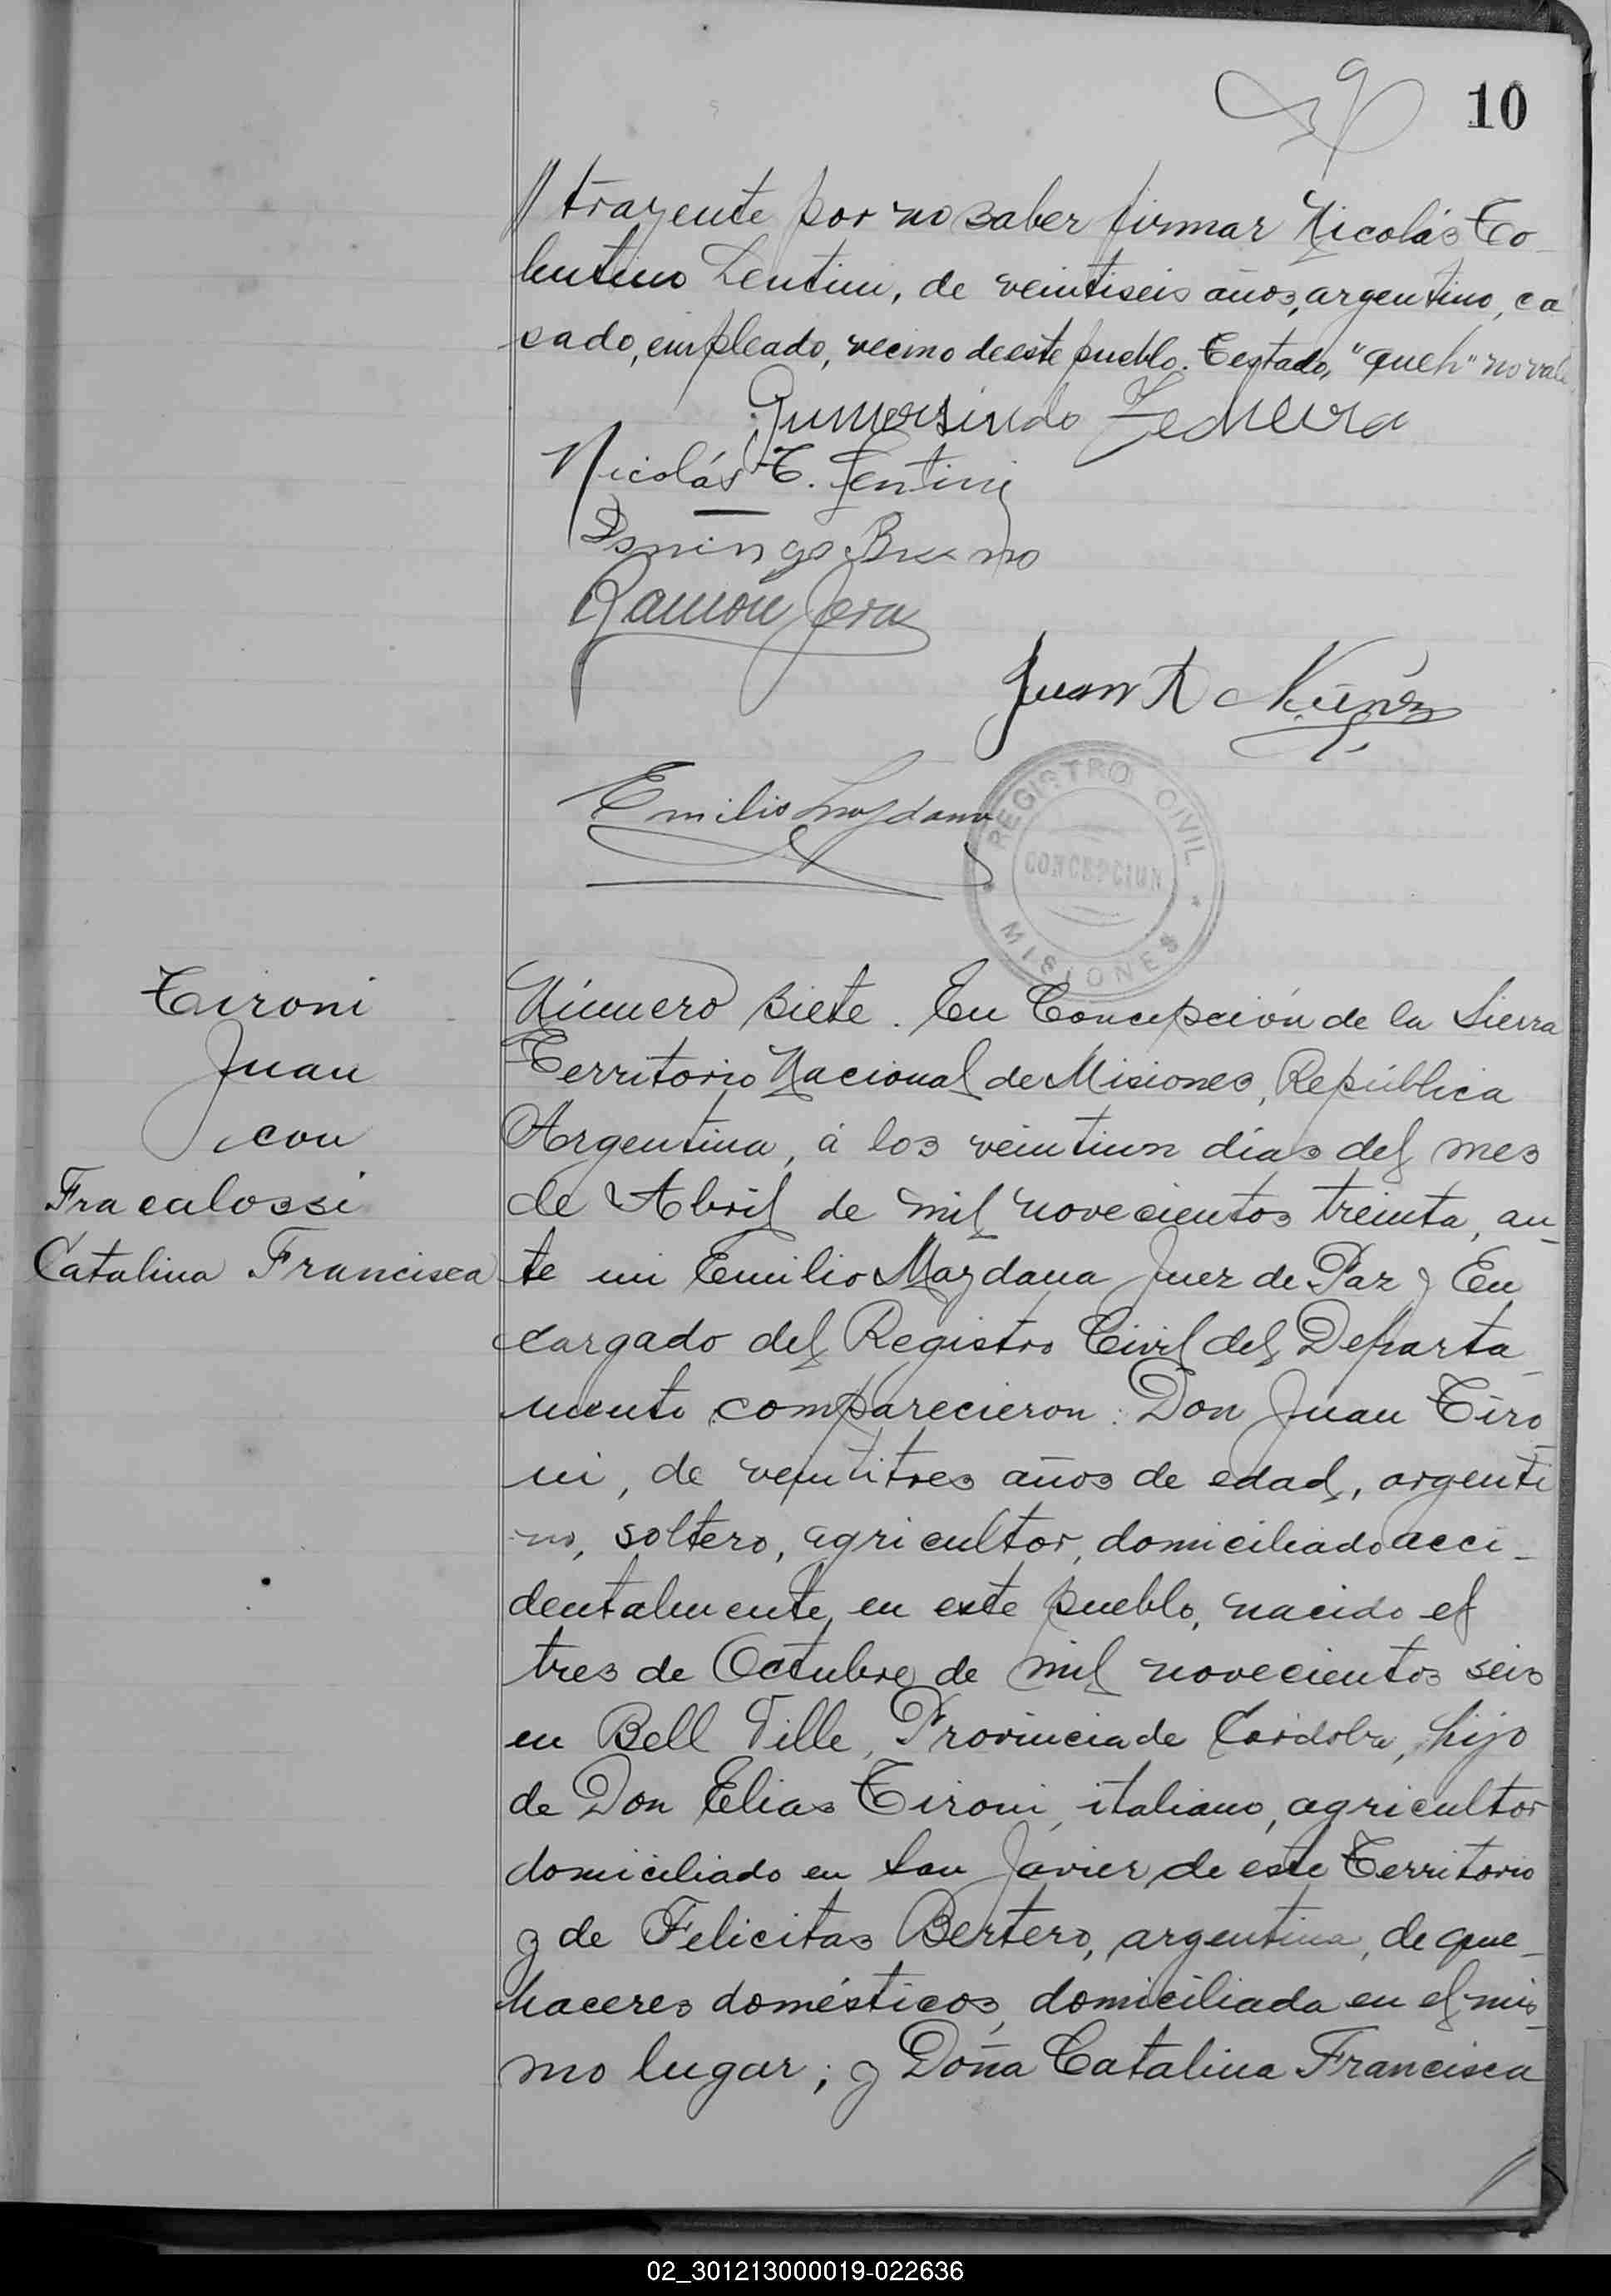 10
// trayente por no saber firmar Nicolás To-
lentino Lentini, de veintiseis años, argentino, ca
sado, empleado, vecino de este pueblo. Testado, "queh" no vale.
Gumersindo
Nicolás T. Lentini
Domingo Bruno
Ramón Jara
Juan A Núñez
Emilio Mazdana
REGISTRO CIVIL
CONCEPCION
MISIONES
Tironi
Juan
con
Fracalossi
Catalina Francisca
Número siete. En Concepción de la Sierra
Territorio Nacional de Misiones, República
Argentina, á los veintiun días del mes
de Abril de mil novecientos treinta, an-
te mi Emilio Mazdana Juez de Paz y En
cargado del Registro Civil del Departa-
mento comparecieron: Don Juan Tiro-
ni, de veintitres años de edad, argenti
no, soltero, agricultor, domiciliado acci-
dentalmente en este pueblo, nacido el
tres de Octubre de mil novecientos seis
en Bell Ville, Provincia de Córdoba, hijo
de Don Elias Tironi, italiano, agricultor
domiciliado en San Javier de este Territorio
y de Felicitas Bertero, argentina, de que-
haceres domésticos, domiciliada en el mis-
mo lugar; y Doña Catalina Francisca
02_301213000019-022636